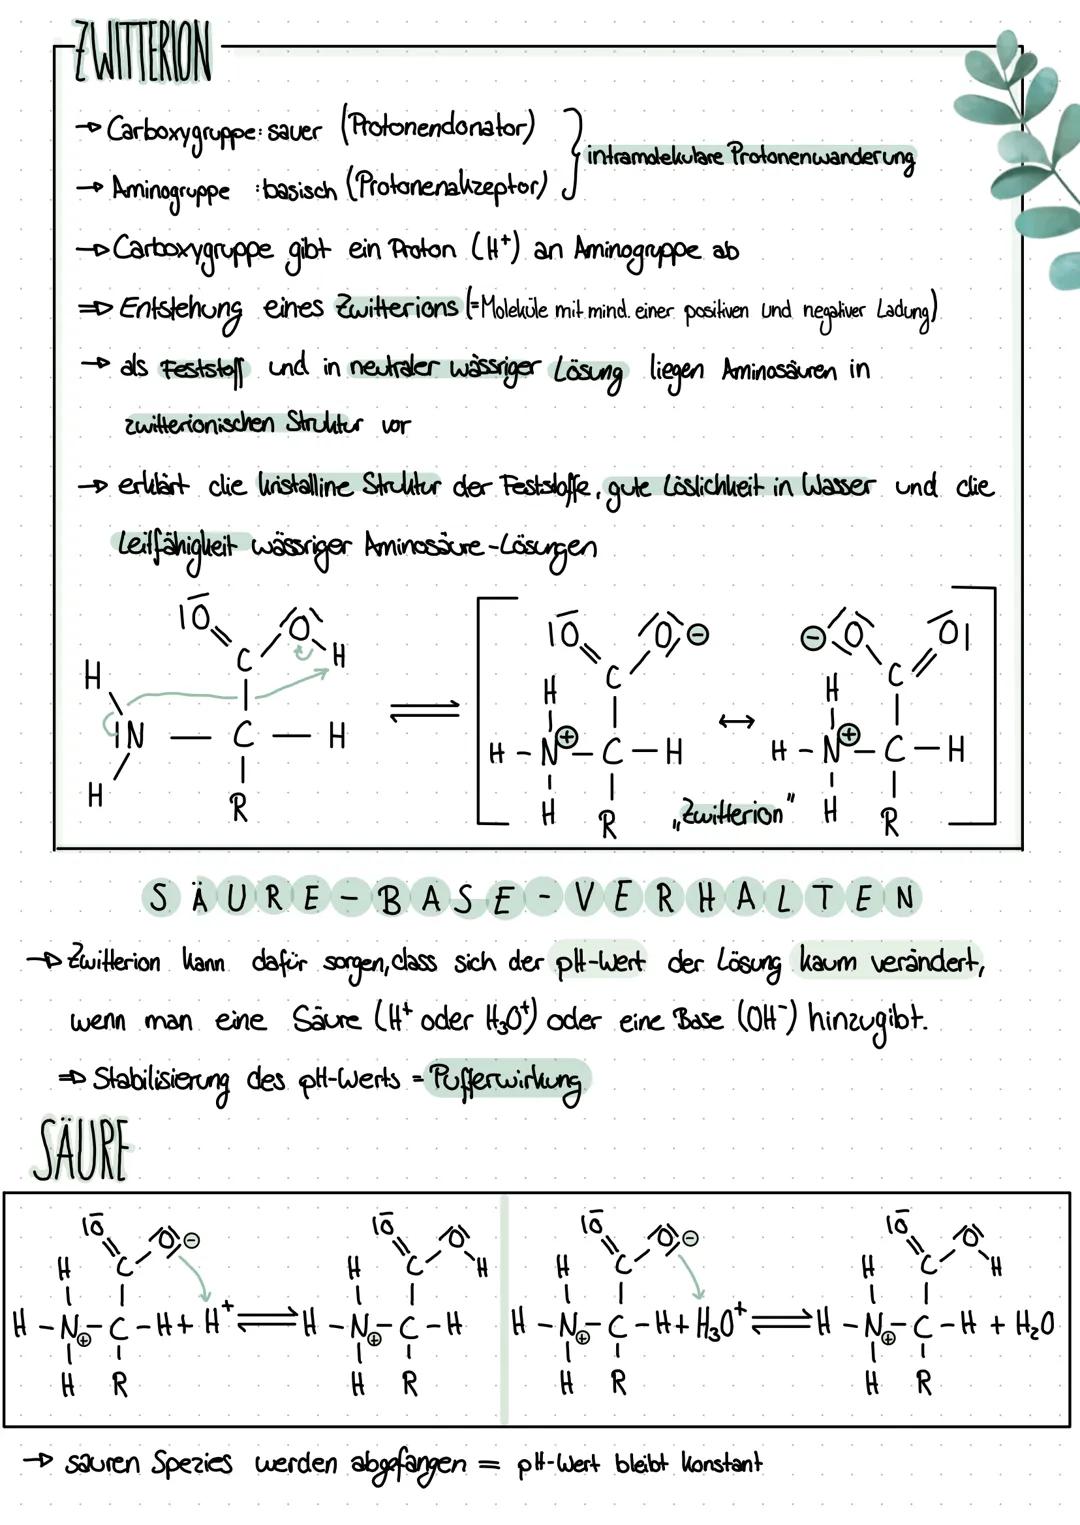 ZWITTERION
→ Carboxygruppe: sauer (Protonendonator)
→ Aminogruppe : basisch (Protonenakzeptor)
intramolekulare Protonenwanderung
→ Carboxygruppe gibt ein Proton (H⁺) an Aminogruppe ab
⇒ Entstehung eines Zwitterions (=Moleküle mit mind. einer positiven und negativer Ladung)
→ als Feststoff und in neutraler wässriger Lösung liegen Aminosäuren in
zwitterionischen Struktur vor
→ erklärt die kristalline Struktur der Feststoffe, gute Löslichkeit in Wasser und die
Leitfähigkeit wässriger Aminosäure-Lösungen
IO O H IO O ⊖ ⊖ O OI
H C H C H C
IN — C — H ⇌ H - N⊕ - C - H ↔ H - N⊕ - C - H
H R H R „Zwitterion" H R
SÄURE-BASE-VERHALTEN
→ Zwitterion kann dafür sorgen, dass sich der pH-Wert der Lösung kaum verändert,
wenn man eine Säure (H⁺ oder H₃O⁺) oder eine Base (OH⁻) hinzugibt.
⇒ Stabilisierung des pH-Werts = Pufferwirkung
SÄURE
IO O ⊖ IO O IO O ⊖ IO O
H C H C H H C H C H
H - N⊕ - C - H + H⁺ ⇌ H - N⊕ - C - H H - N⊕ - C - H + H₃O⁺ ⇌ H - N⊕ - C - H + H₂O
H R H R H R H R
→ sauren Spezies werden abgefangen = pH-Wert bleibt konstant